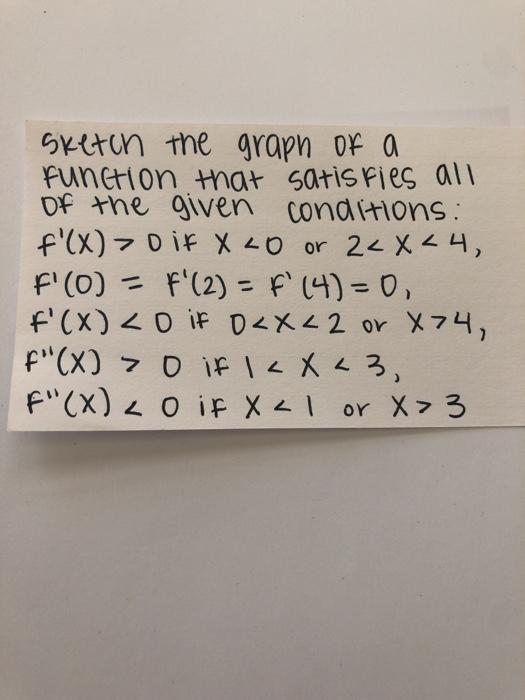 Sketch the graph of a
function that satisfies all
of the given conditions:
f'(x) > 0 if x < 0 or 2 < x < 4,
f'(0) = f'(2) = f'(4) = 0,
f'(x) < 0 if 0 < x < 2 or x > 4,
f"(x) > 0 if 1 < x < 3,
f"(x) < 0 if x < 1 or x > 3